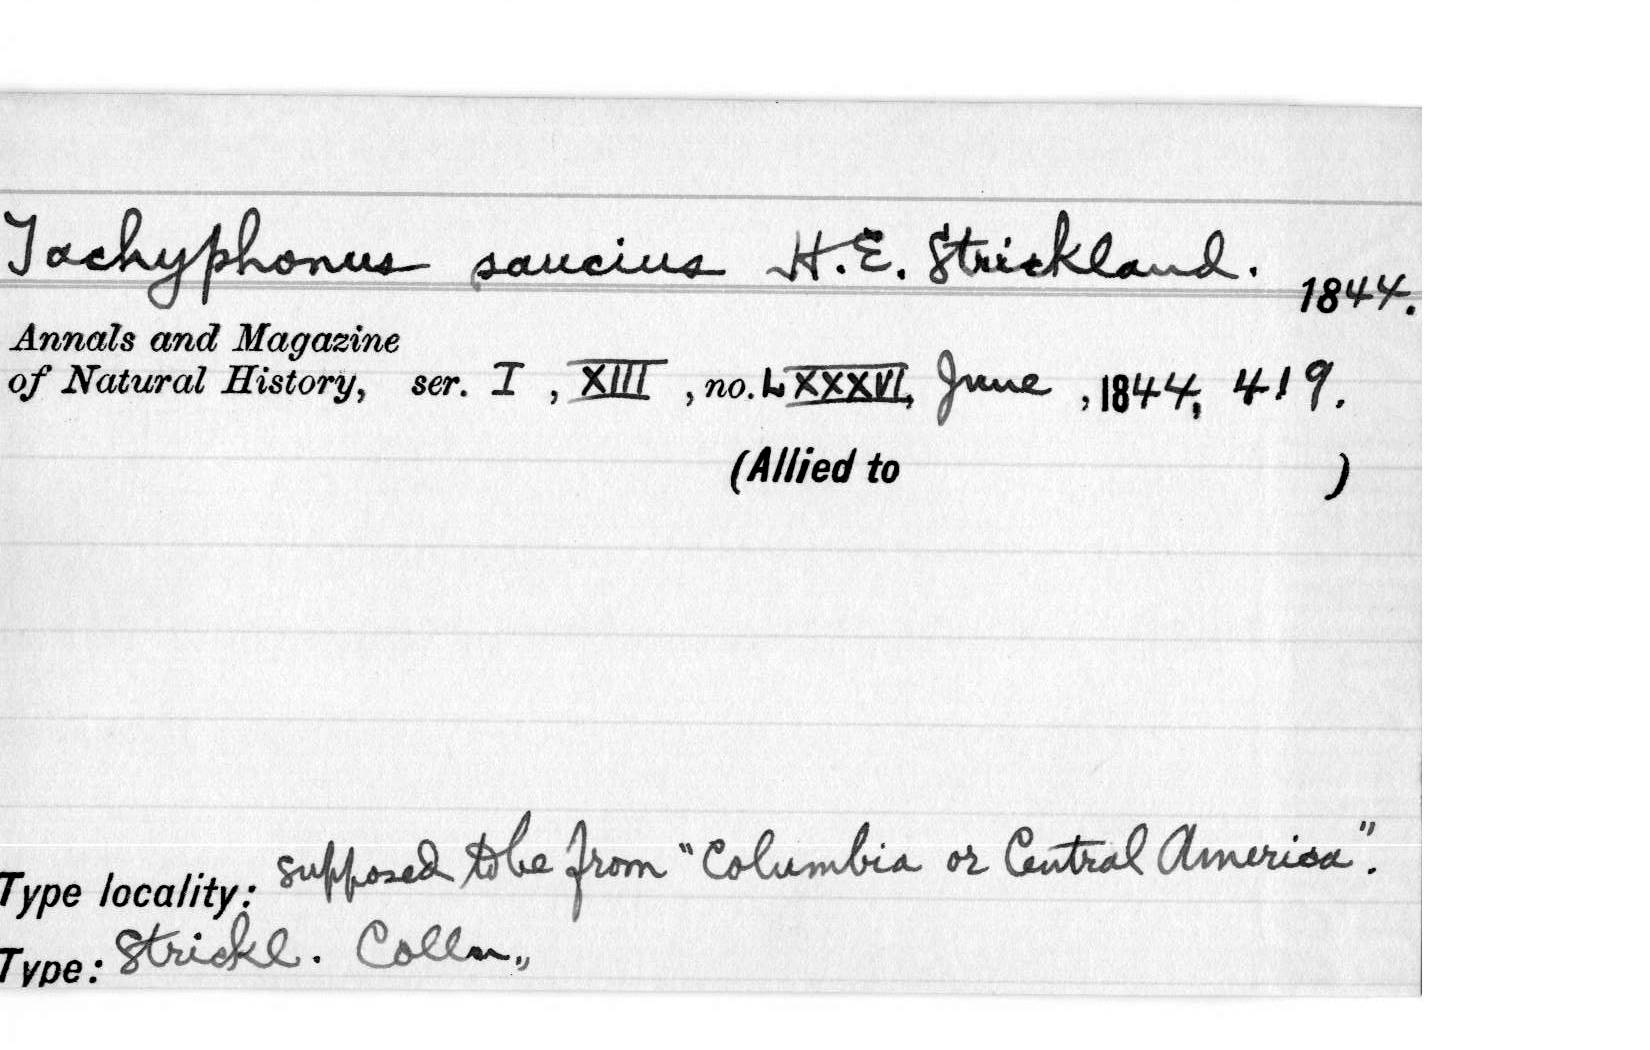 Tachyphonus saucius H.E. Strickland.
1844.
Annals and Magazine
of Natural History, ser. I , XIII , no. LXXXVI, June , 1844, 419.
(Allied to )
Type locality: supposed to be from "Columbia or Central America".
Type: Strickl. Colln.,